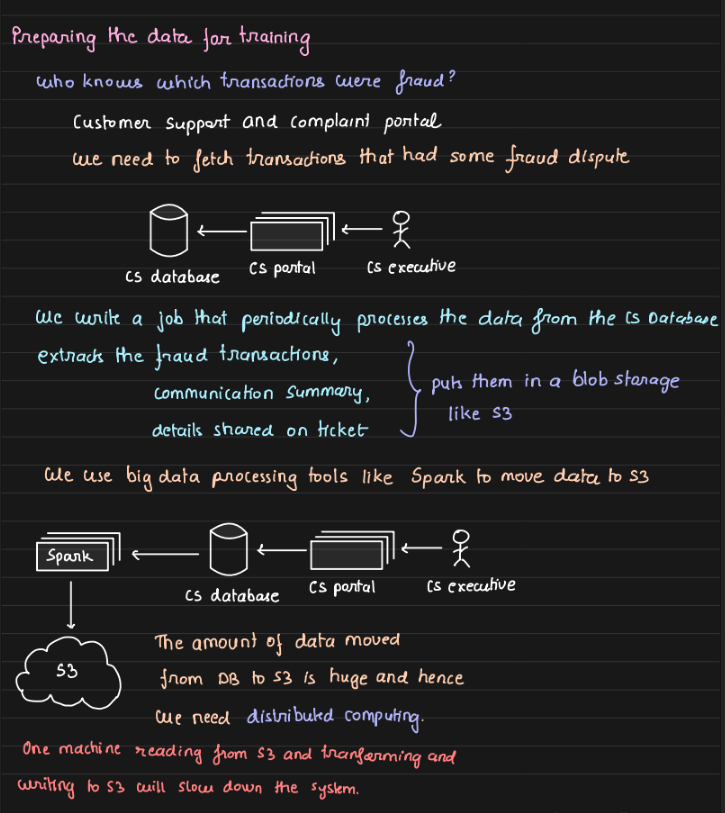 Preparing the data for training
who knows which transactions were fraud?
Customer support and complaint portal
we need to fetch transactions that had some fraud dispute
CS database
CS portal
CS executive
We write a job that periodically processes the data from the CS Database
extracts the fraud transactions,
communication summary,
details shared on ticket
puts them in a blob storage
like S3
We use big data processing tools like Spark to move data to S3
Spark
CS database
CS portal
CS executive
S3
The amount of data moved
from DB to S3 is huge and hence
we need distributed computing.
One machine reading from S3 and tranforming and
writing to S3 will slow down the system.